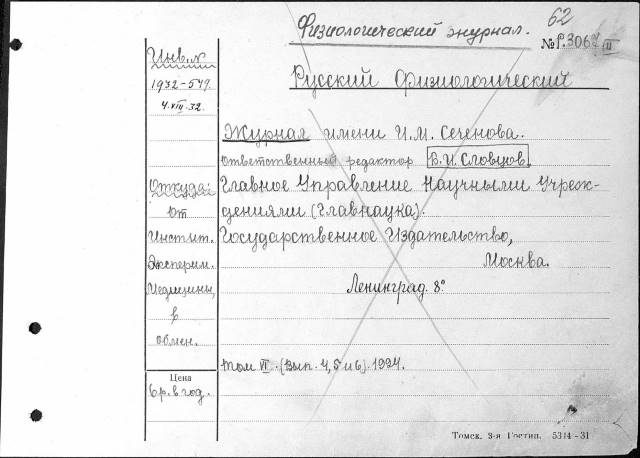 62
Физиологический журнал.
№ P.3067 III
Инв.№
1932-549.
4.VIII.32.
Русский Физиологический
Журнал имени И.М. Сеченова.
Ответственный редактор В.И. Словцов.
Откуда:
от
Инстит.
Эксперим.
Медицины,
в
обмен.
Главное Управление Научными Учреж-
дениями (Главнаука).
Государственное Издательство,
Москва.
Ленинград. 8°
том VI. (Вып. 4, 5 и 6). 1924.
Цена
6 р. в год.
Томск. 3-я Гостип. 5314-31